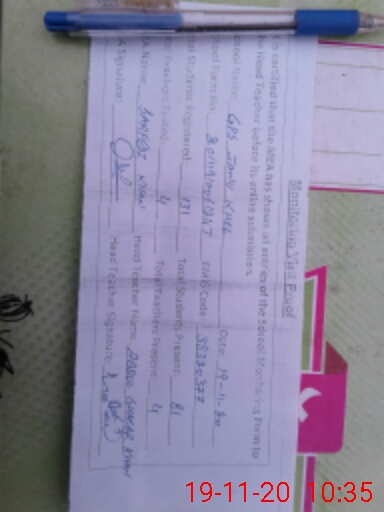 Monitoring Visit Proof
It is certified that the MEA has shown all entries of the School Monitoring Form to
Head Teacher before its online submission.
School Name: GPS JANU KHEL Date: 19-11-20
School Form No: EMIS Code: 38320377
Total Students Registered: 131 Total Students Present: 81
Total Teachers Posted: 4 Total Teachers Present: 4
MEA Name: SARFRAZ KHAN Head Teacher Name: KHAN
MEA Signature: Head Teacher Signature:
19-11-20 10:35